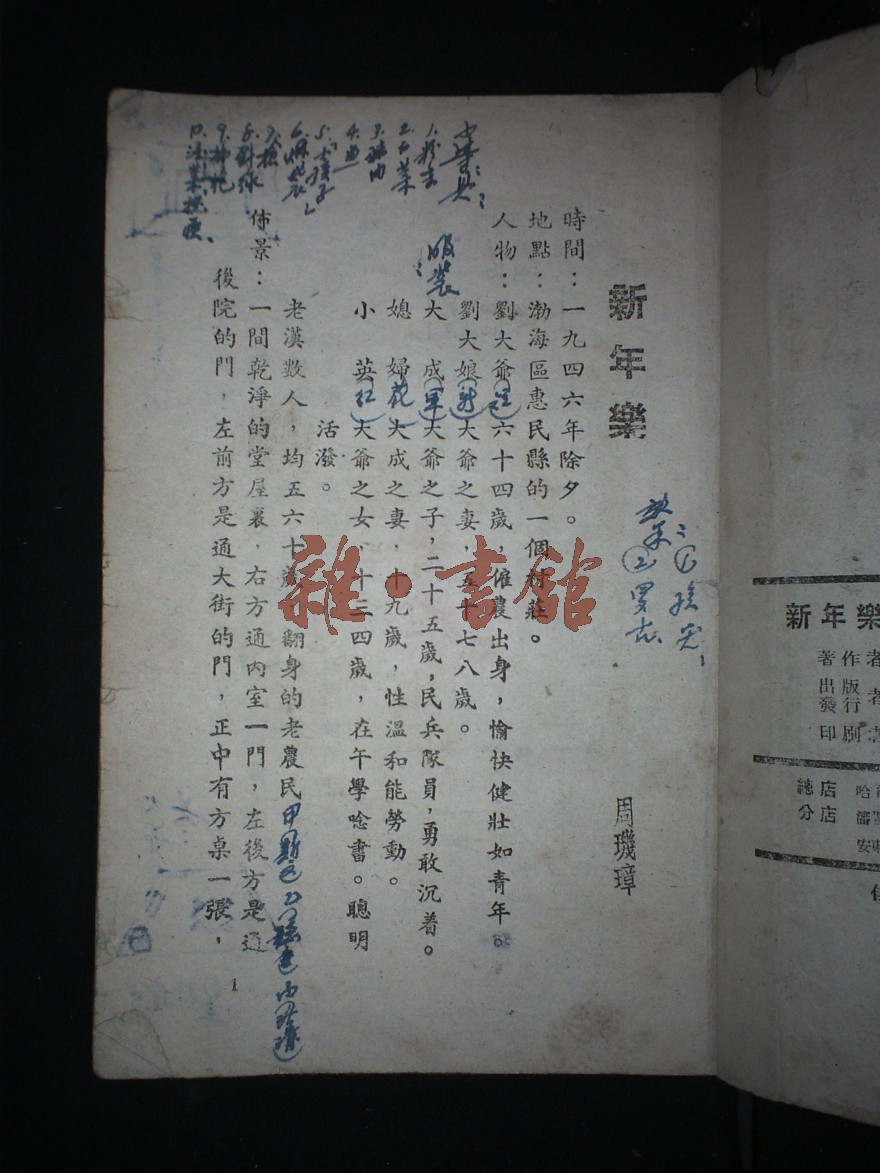 新年樂
周璣璋
時間：一九四六年除夕。
地點：渤海區惠民縣的一個村莊。
人物：劉大爺 六十四歲，僱農出身，愉快健壯如青年。
劉大娘 大爺之妻，五十七八歲。
大成（軍）大爺之子，二十五歲，民兵隊員，勇敢沉着。
媳婦（花）大成之妻，十九歲，性溫和能勞動。
小英（紅）大爺之女，十三四歲，在午學唸書。聰明
活潑。
老漢数人，均五六十歲，翻身的老農民 甲
佈景：一間乾淨的堂屋裏，右方通內室一門，左後方是通
後院的門，左前方是通大街的門，正中有方桌一張，
1
服裝：
小道具：
2. 白菜
4. 魚
雜·書館
新年樂
著作者
出版
發行者
印刷
總店 哈
分店 瀋
安